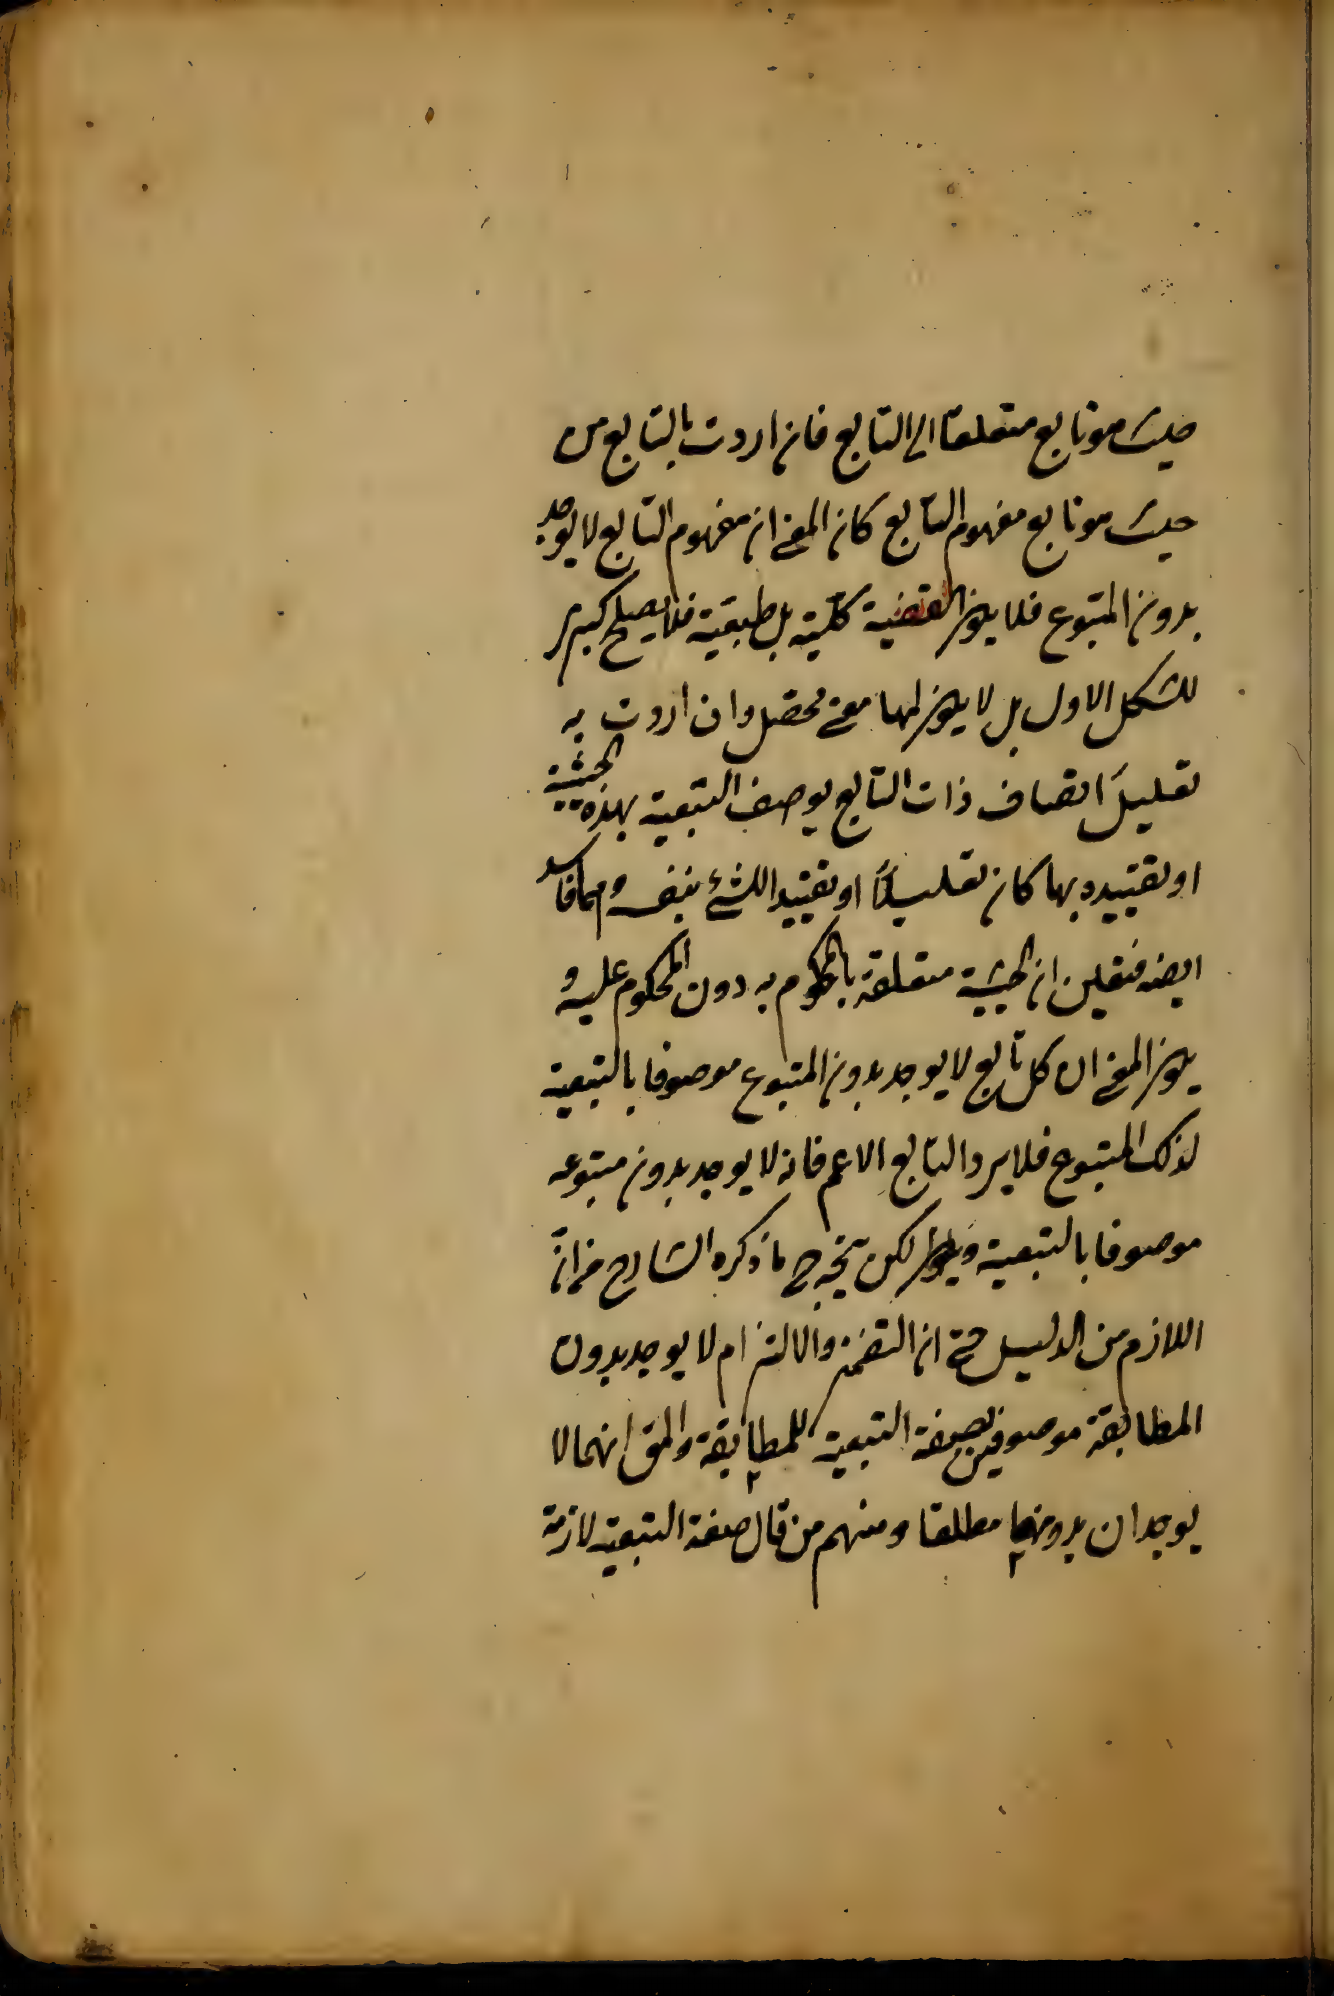 حيث هو تابع متعلقا الى التابع فان اردت بالتابع من
حيث هو تابع مفهوم التابع كان المعنى ان مفهوم التابع لا يوجد
بدون المتبوع فلا يكون القضية كلية بل طبيعية فلا يصلح كبرى
للشكل الاول بل لا يكون لها معنى محصل وان اردت به
تعليل اتصاف ذات التابع بوصف التبعية بهذه الحيثية
او تقييده بها كان تعليلًا او تقييدا للشئ بنفسه وهما فاسد
ايضه فتعين ان الحيثية متعلقة بالمحكوم به دون المحكوم عليه و
يكون المعنى ان كل تابع لا يوجد بدون المتبوع موصوفا بالتبعية
لذلك المتبوع فلا يرد التابع الاعم فانه لا يوجد بدون متبوعه
موصوفا بالتبعية لكن يتجه ح ما ذكره الشارح من ان
اللازم من الدليل ح ان التضمن والالتزام لا يوجد بدون
المطابقة موصوفين بصفة التبعية للمطابقة والمق انهما لا
يوجدان بدونها مطلقا ومنهم من قال صفة التبعية لازمة